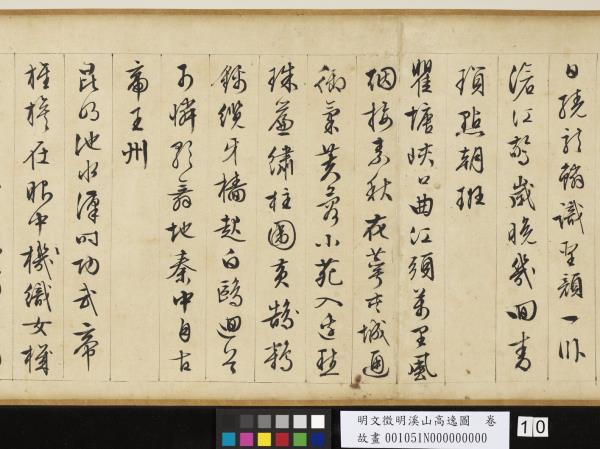 日繞龍鱗識聖顏一臥
滄江驚歲晚幾回青
瑣點朝班
瞿塘峽口曲江頭萬里風
烟接素秋花萼夾城通
御氣芙蓉小苑入邊愁
珠簾繡柱圍黃鵠鶴
錦纜牙檣起白鷗迴首
可憐歌舞地秦中自古
帝王州
昆明池水漢時功武帝
旌旗在眼中機織女機
明文徵明溪山高逸圖　卷
故畫 001051N000000000
10